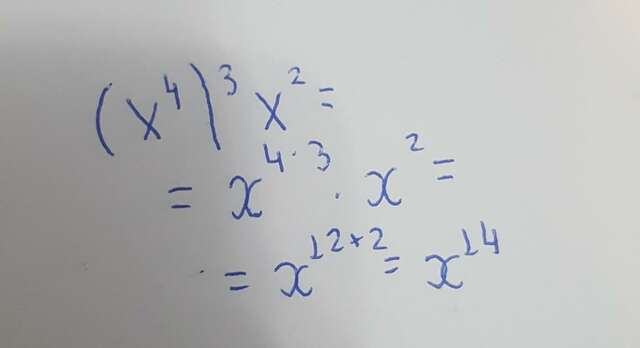 (x⁴)³ x² =
= x⁴·³ · x² =
= x¹²⁺² = x¹⁴